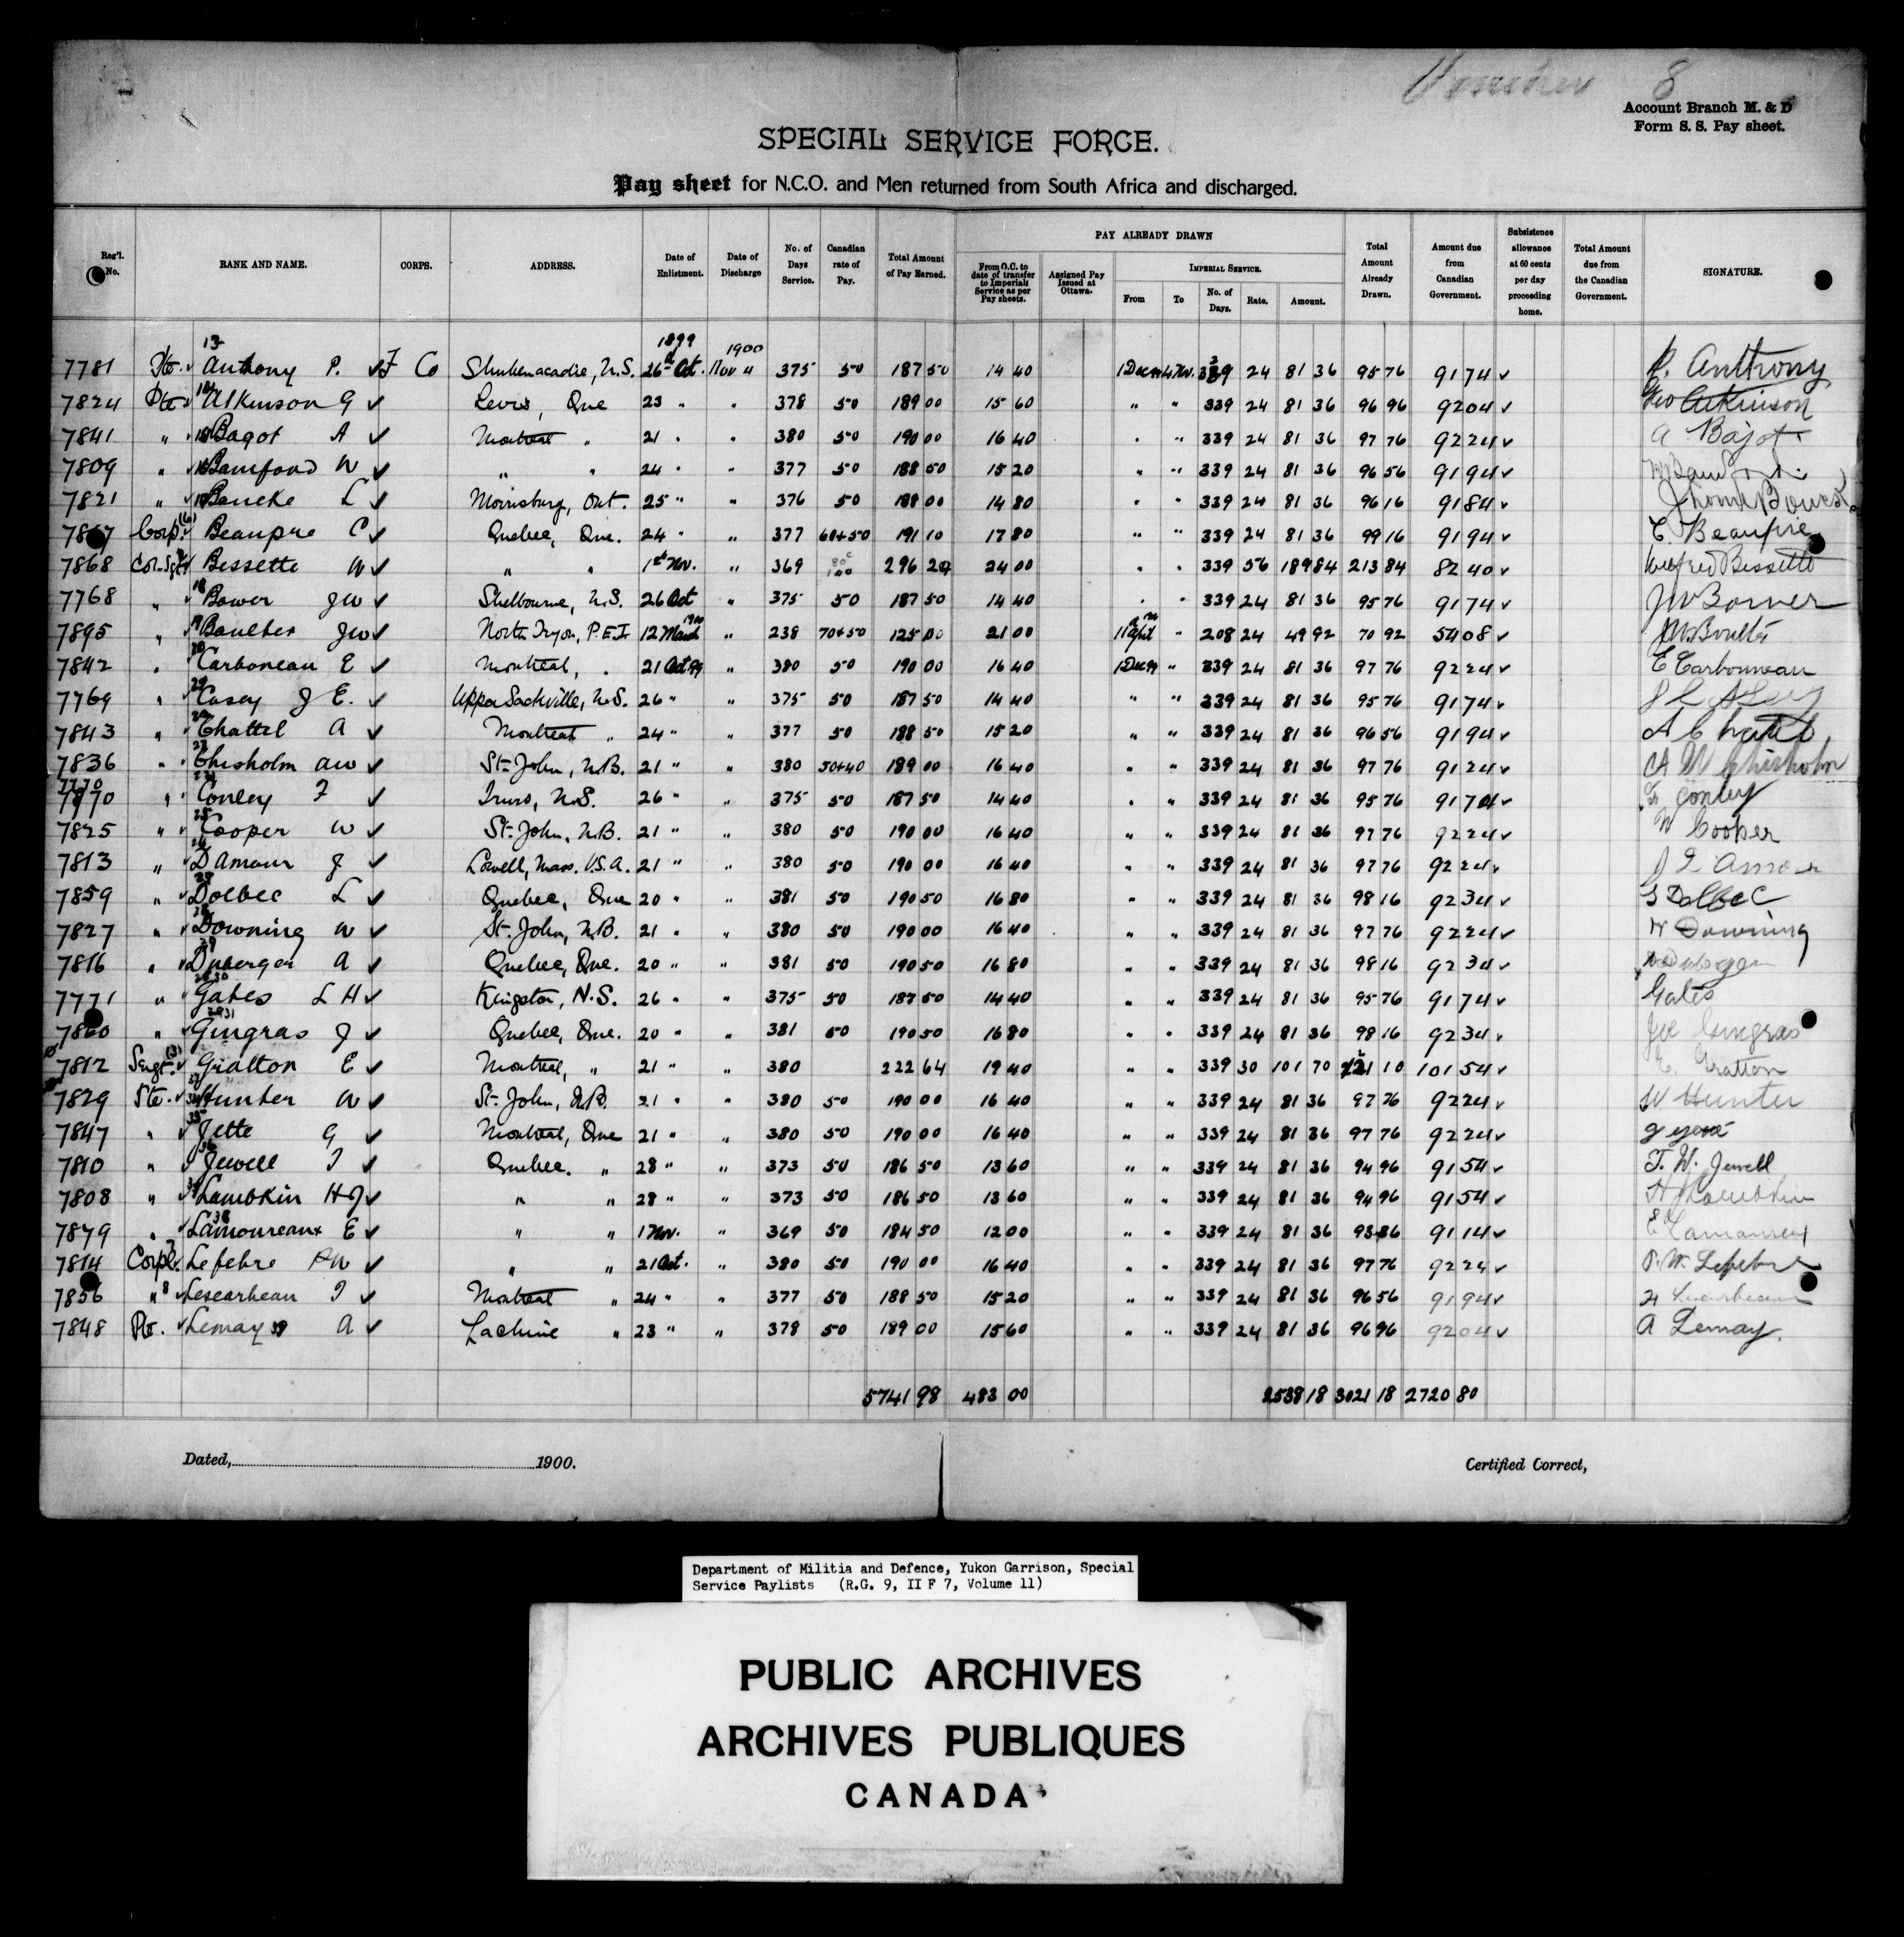 Voucher 8
Account Branch M. & D
Form S. S. Pay sheet.
SPECIAL SERVICE FORCE.
Pay sheet for N.C.O. and Men returned from South Africa and discharged.
Reg'l. No. RANK AND NAME. CORPS. ADDRESS. Date of Enlistment. Date of Discharge No. of Days Service. Canadian rate of Pay. Total Amount of Pay Earned. PAY ALREADY DRAWN From O.C. to date of transfer to Imperial Service as per Pay sheets. Assigned Pay Issued at Ottawa. IMPERIAL SERVICE. From To No. of Days. Rate. Amount. Total Amount Already Drawn. Amount due from Canadian Government. Subsistence allowance at 60 cents per day proceeding home. Total Amount due from the Canadian Government. SIGNATURE.
13 1899 1900
7781 Pte. ✓ Anthony P. ✓ F Co Shubenacadie, N.S. 26th Oct. Nov 4 375 50 187 50 14 40 1 Decr 4 Nov. 339 24 81 36 95 76 91 74 ✓ P. Anthony
7824 Pte ✓ 14 Atkinson G ✓ Levis, Que 23 " " 378 50 189 00 15 60 " " 339 24 81 36 96 96 92 04 ✓ Geo Atkinson
7841 " ✓ 15 Bagot A ✓ Montreal " 21 " " 380 50 190 00 16 40 " " 339 24 81 36 97 76 92 24 ✓ A Bagot
7809 " ✓ 16 Bamford W ✓ " " 24 " " 377 50 188 50 15 20 " " 339 24 81 36 96 56 91 94 ✓ W Bamford
7821 " ✓ 17 Bancke L ✓ Morrisburg, Ont. 25 " " 376 50 188 00 14 80 " " 339 24 81 36 96 16 91 84 ✓
7867 Corp. ✓ (6) Beaupre C ✓ Quebec, Que. 24 " " 377 60+50 191 10 17 80 " " 339 24 81 36 99 16 91 94 ✓ C. Beaupre
7868 Col-Sgt ✓ Bessette W ✓ " " 1st Nov. " 369 80c 1 00 296 24 24 00 " " 339 56 189 84 213 84 82 40 ✓ Wilfred Bessette
7768 " ✓ 18 Bower JW ✓ Shelbourne, N.S. 26 Oct " 375 50 187 50 14 40 " " 339 24 81 36 95 76 91 74 ✓ JW Bower
7895 " ✓ 19 Boulter JW ✓ North Tryon, P.E.I 12 March 1900 " 238 70+50 125 00 21 00 11 April " 208 24 49 92 70 92 54 08 ✓ JW Boulter
7842 " 20 Carboneau E ✓ Montreal, " 21 Oct 99 " 380 50 190 00 16 40 1 Decr 99 " 339 24 81 36 97 76 92 24 ✓ E Carbonneau
7769 " ✓ 21 Casey J E. ✓ Upper Sackville, N.S. 26 " " 375 50 187 50 14 40 " " 339 24 81 36 95 76 91 74 ✓ J E Casey
7843 " ✓ 22 Chattel A ✓ Montreal " 24 " " 377 50 188 50 15 20 " " 339 24 81 36 96 56 91 94 ✓ A Chattel
7836 " ✓ 23 Chisholm AW ✓ St. John, N.B. 21 " " 380 50+40 189 00 16 40 " " 339 24 81 36 97 76 91 24 ✓ A W Chisholm
7770 " ✓ 24 Conley F ✓ Truro, N.S. 26 " " 375 50 187 50 14 40 " " 339 24 81 36 95 76 91 74 ✓ F Conley
7825 " ✓ 25 Cooper W ✓ St. John, N.B. 21 " " 380 50 190 00 16 40 " " 339 24 81 36 97 76 92 24 ✓ W Cooper
7813 " ✓ 26 D'Amour J ✓ Lowell, Mass. U.S.A. 21 " " 380 50 190 00 16 40 " " 339 24 81 36 97 76 92 24 ✓ J D Amour
7859 " ✓ 27 Dolbec L ✓ Quebec, Que 20 " " 381 50 190 50 16 80 " " 339 24 81 36 98 16 92 34 ✓ Dolbec
7827 " ✓ 28 Downing W ✓ St. John, N.B. 21 " " 380 50 190 00 16 40 " " 339 24 81 36 97 76 92 24 ✓ W Downing
7816 " ✓ 29 Duberger A ✓ Quebec, Que. 20 " " 381 50 190 50 16 80 " " 339 24 81 36 98 16 92 34 ✓
7771 " ✓ 30 Gates L H ✓ Kingston, N.S. 26 " " 375 50 187 50 14 40 " " 339 24 81 36 95 76 91 74 ✓ Gates
7860 " ✓ 31 Gingras J ✓ Quebec, Que. 20 " " 381 50 190 50 16 80 " " 339 24 81 36 98 16 92 34 ✓ Joe Gingras
7812 Sergt. (3) ✓ Gratton E ✓ Montreal, " 21 " " 380 222 64 19 40 " " 339 30 101 70 121 10 101 54 ✓ E. Gratton
7829 Pte. ✓ Hunter W ✓ St. John, N.B. 21 " " 380 50 190 00 16 40 " " 339 24 81 36 97 76 92 24 ✓ W Hunter
7847 " ✓ 35 Jette G ✓ Montreal, Que 21 " " 380 50 190 00 16 40 " " 339 24 81 36 97 76 92 24 ✓
7810 " ✓ 36 Jewell T ✓ Quebec. " 28 " " 373 50 186 50 13 60 " " 339 24 81 36 94 96 91 54 ✓ T. W. Jewell
7808 " ✓ 37 Lambkin HJ ✓ " " 28 " " 373 50 186 50 13 60 " " 339 24 81 36 94 96 91 54 ✓ H J Lambkin
7879 " ✓ 38 Lamoureaux E ✓ " " 1 Nov. " 369 50 184 50 12 00 " " 339 24 81 36 93 36 91 14 ✓ E Lamoureux
7814 Corpl. ✓ 7 Lefebre AW ✓ " " 21 Oct. " 380 50 190 00 16 40 " " 339 24 81 36 97 76 92 24 ✓ W. Lefebre
7856 " 8 ✓ Lescarbeau J ✓ Montreal " 24 " " 377 50 188 50 15 20 " " 339 24 81 36 96 56 91 94 ✓ Lescarbeau
7848 Pte. ✓ Lemay 39 A ✓ Lachine " 23 " " 378 50 189 00 15 60 " " 339 24 81 36 96 96 92 04 ✓ A Lemay.
5741 98 483 00 2538 18 3021 18 2720 80
Dated, 1900. Certified Correct,
Department of Militia and Defence, Yukon Garrison, Special
Service Paylists (R.G. 9, II F 7, Volume 11)
PUBLIC ARCHIVES
ARCHIVES PUBLIQUES
CANADA